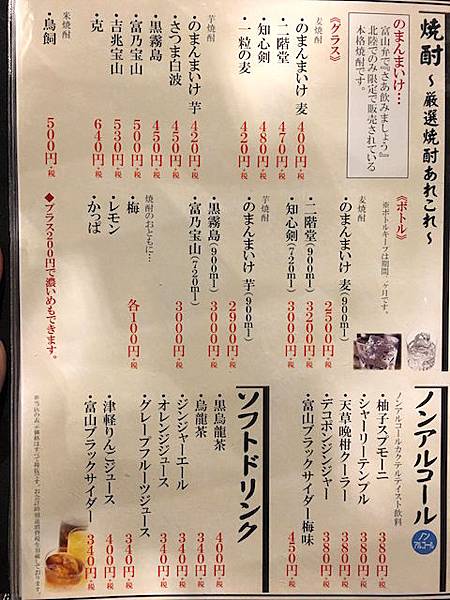 焼酎 ～厳選焼酎あれこれ～
のまんまいけ…
富山弁で『さあ飲みましょう』
北陸でのみ限定で販売されている
本格焼酎です。
《グラス》
麦焼酎
・のまんまいけ 麦 400円+税
・二階堂 470円+税
・知心剣 480円+税
・一粒の麦 420円+税
芋焼酎
・のまんまいけ 芋 420円+税
・さつま白波 450円+税
・黒霧島 450円+税
・富乃宝山 500円+税
・吉兆宝山 530円+税
・克 640円+税
米焼酎
・鳥飼 500円+税
《ボトル》
※ボトルキープは期間一ヶ月です。
麦焼酎
・のまんまいけ 麦(900ml) 2500円+税
・二階堂(900ml) 3200円+税
・知心剣(720ml) 3000円+税
芋焼酎
・のまんまいけ 芋(900ml) 2900円+税
・黒霧島(900ml) 3000円+税
・富乃宝山(720ml) 3600円+税
焼酎のおともに…
・梅
・レモン
・かっぱ
各100円+税
◆プラス200円で濃いめもできます。
ノンアルコール
ノンアルコール
ノンアルコールカクテルテイスト飲料
・柚子スプモーニ 380円+税
・シャーリーテンプル 380円+税
・天草晩柑クーラー 380円+税
・デコポンジンジャー 380円+税
・富山ブラックサイダー梅味 450円+税
ソフトドリンク
・黒烏龍茶 400円+税
・烏龍茶 340円+税
・ジンジャーエール 340円+税
・オレンジジュース 340円+税
・グレープフルーツジュース 340円+税
・津軽りんごジュース 400円+税
・富山ブラックサイダー 340円+税
※当店の表示価格はすべて税抜です。お会計時別途消費税を頂戴しております。